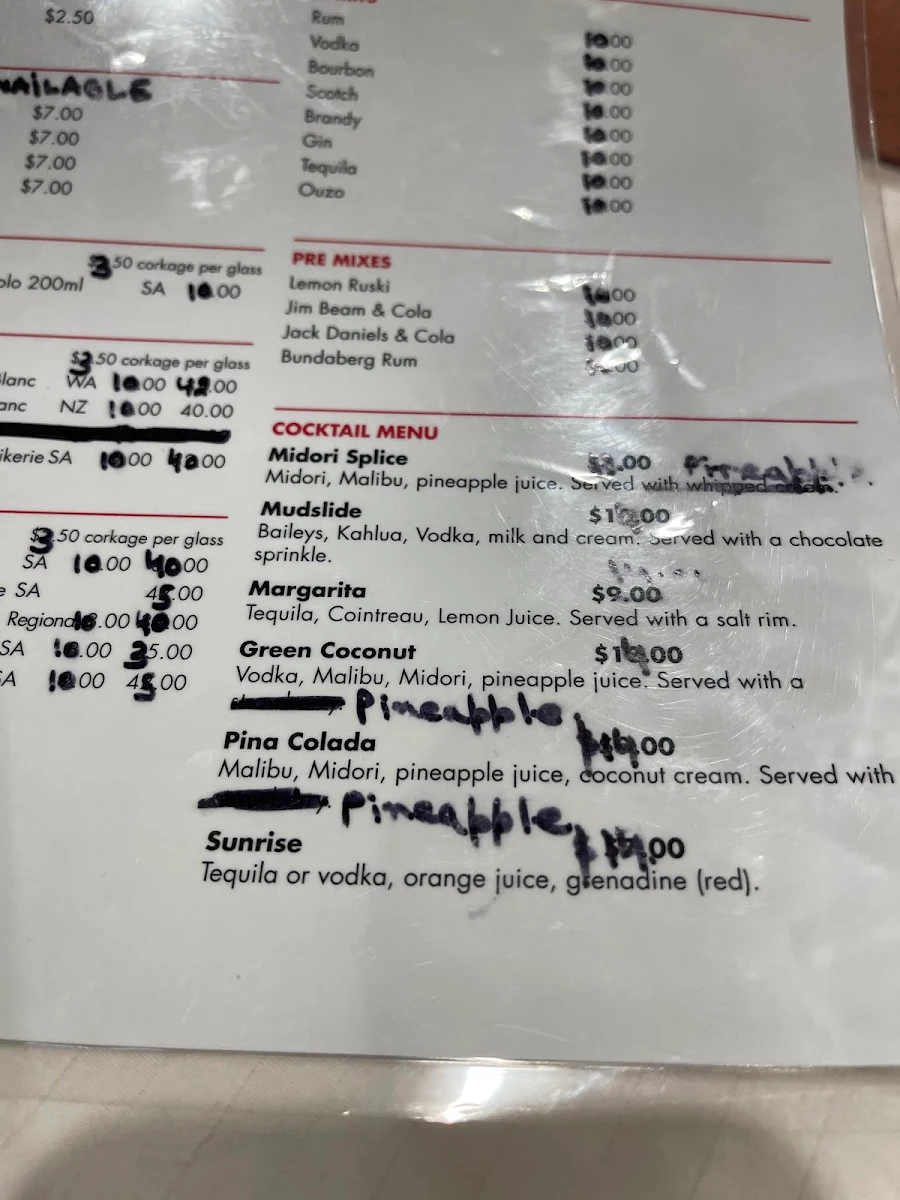 $2.50
AiLABLE
$7.00
$7.00
$7.00
$7.00
$3.50 corkage per glass
olo 200ml SA 10.00
$3.50 corkage per glass
lanc WA 10.00 42.00
anc NZ 10.00 40.00
ikerie SA 10.00 40.00
$3.50 corkage per glass
SA 10.00 40.00
e SA 45.00
Regional .00 40.00
SA 10.00 35.00
A 10.00 45.00
Rum
Vodka 10.00
Bourbon 10.00
Scotch 10.00
Brandy 10.00
Gin 10.00
Tequila 10.00
Ouzo 10.00
10.00
PRE MIXES
Lemon Ruski 10.00
Jim Beam & Cola 10.00
Jack Daniels & Cola 10.00
Bundaberg Rum
COCKTAIL MENU
Midori Splice
Midori, Malibu, pineapple juice. Served with whipped cream.
Mudslide
Baileys, Kahlua, Vodka, milk and cream. Served with a chocolate
sprinkle.
Margarita $9.00
Tequila, Cointreau, Lemon Juice. Served with a salt rim.
Green Coconut $14.00
Vodka, Malibu, Midori, pineapple juice. Served with a
Pineapple
Pina Colada $14.00
Malibu, Midori, pineapple juice, coconut cream. Served with
Pineapple
Sunrise $14.00
Tequila or vodka, orange juice, grenadine (red).